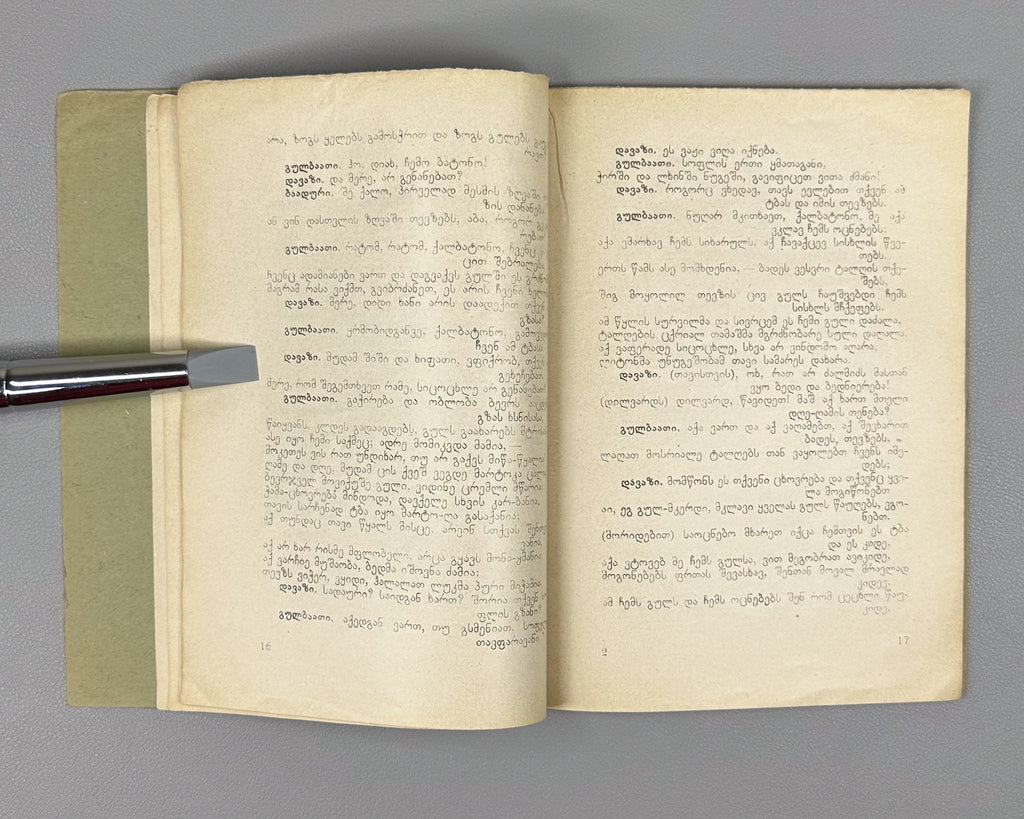 არა, ზოგს ყელებს გამოსჭრით და ზოგს გულებს,
გულბაათი. ჰო, დიახ, ჩემო ბატონო!
დავაზი. და მერე, არ გენანებათ?
ბაადური. შე ქალო, პირველად მესმის ზღვაში
ზის დანანება
ან ვინ დასთვლის ზღვაში თევზებს, აბა, როგორ
რებათ
გულბაათი. რატომ, რატომ, ქალბატონო, ჩვენც
ცით შებრალება
ჩვენც ადამიანები ვართ და დაგვაქვს გულში ეს
მაგრამ რასა ვიქმთ, გვიბრძანეთ, ეს არის ჩვენი
დავაზი. მერე, დიდი ხანი არის დაადექით
გზასა?
გულბაათი. ყრმობიდგანვე, ქალბატონო,
ჩვენ ამ ტბასა
დავაზი. მუდამ შიში და ხიფათი, ვფიქრობ,
გეხეხებათ.
მერე, რომ შეგემთხვეთ რამე, სიცოცხლე არ გენანებათ?
გულბაათი. გაჭირება და ობლობა ბევრს
გზას ხსნისასა.
წაიყვანს, კლდეს გადააგდებს, გულს გაახარებს მტრისა
ასე იყო ჩემი საქმეც; ადრე მომიკვდა მამია, —
მოკეთეს ვის რათ უნდიხარ, თუ არ გაქვს მიწა-წყალი
ღამე და დღე, მუდამ ცის ქვეშ ვეგდე მარტოკა
ბევრჯველ მოვიქუშე გული, ვიდინე ცრემლი მწარია.
ჭამა-ცხოვრება მინდოდა, დავქელე სხვის კარ-ბანია,
თავის სარჩენად ტბა იყო მარტო-ღა გასაქანია;
აქ თუნდაც თავი წყალს მისცე, არვინ სთქვას
ვანია.
აქ არ ხარ რისმე მფლობელი, არცა გყავს მონა-ყმანია;
აქ ვარჩიე მუშაობა, ბედმა იშოვნა მამია;
თევზს ვიჭერ, ვყიდი, ჰალალათ ლუკმა პური მიჭამია
დავაზი. სადაური? საიდგან ხართ? შორია თქვენ
ფლის გზანი?
გულბაათი. აქედგან ვართ, თუ გსმენიათ,
თავფარავანი
16
დავაზი. ეს ვაჟი ვიღა იქნება.
გულბაათი. სოფლის ერთი ყმათაგანი,
ჭირში და ლხინში ნუგეში, გავიფიცეთ ვითა ძმანი!
დავაზი. როგორც ვხედავ, თავს ევლებით თქვენ ამ
ტბას და იმის თევზებს.
გულბაათი. ნუღარ მკითხავთ, ქალბატონო, მე აქა
ვკლავ ჩემს ოცნებებს;
აქა ვმარხავ ჩემს სიხარულს, აქ ჩავაქცევ სისხლის წვე-
თებს.
ერთს წამს ასე მომხდენია, — ბადეს ვესვრი ტალღის თქე-
შებს,
შიგ მოყოლილ თევზის ცივ გულს ჩაუშვებდი ჩემს
სისხლს მჩქეფებს.
ამ წყლის სურვილმა და სივრცემ ეს ჩემი გული დაძალა,
ტალღების ცქრიალ თამაშმა მგრძნობარე სული დაღალა,
აქ ვაფერადე სიცოცხლე, სხვა არ ვინდომო აღარა,
ლიტონმა უნუგეშობამ თავი სამარეს დახარა.
დავაზი. (თავისთვის), ოხ, რათ არ ძალმიძს მასთან
ვყო ბედი და ბედნიერება!
(დილვარდს) დილვარდ, წავიდეთ! მაშ აქ ხართ მთელი
დღე-ღამის თენება?
გულბაათი. აქა ვართ და აქ ვაღამებთ, აქ შევხარით
ბადეს, თევზებს,
ლაღათ მოსრიალე ტალღებს თან ვაყოლებთ ჩვენს იმე-
დებს;
დავაზი. მომწონს ეს თქვენი ცხოვრება და თქვენც ყვე-
ლა მოგიწონებთ
აი, ეგ გულ-მკერდი, მკლავი ყველას გულს წაუღებს, ეგო-
ნებთ.
(მორიდებით) საოცნებო მხარეთ იქცა ჩემთვის ეს ტბა
და ეს კიდე,
აქა ვტოვებ მე ჩემს გულსა, ვით მეგობრათ ავიკიდე,
მოგონებებს ფრთას შევასხავ, შენთან მოვალ მრავლად
კიდევ.
ამ ჩემს გულს და ჩემს ოცნებებს შენ რომ ცეცხლი წაუ-
კიდე,
2
17